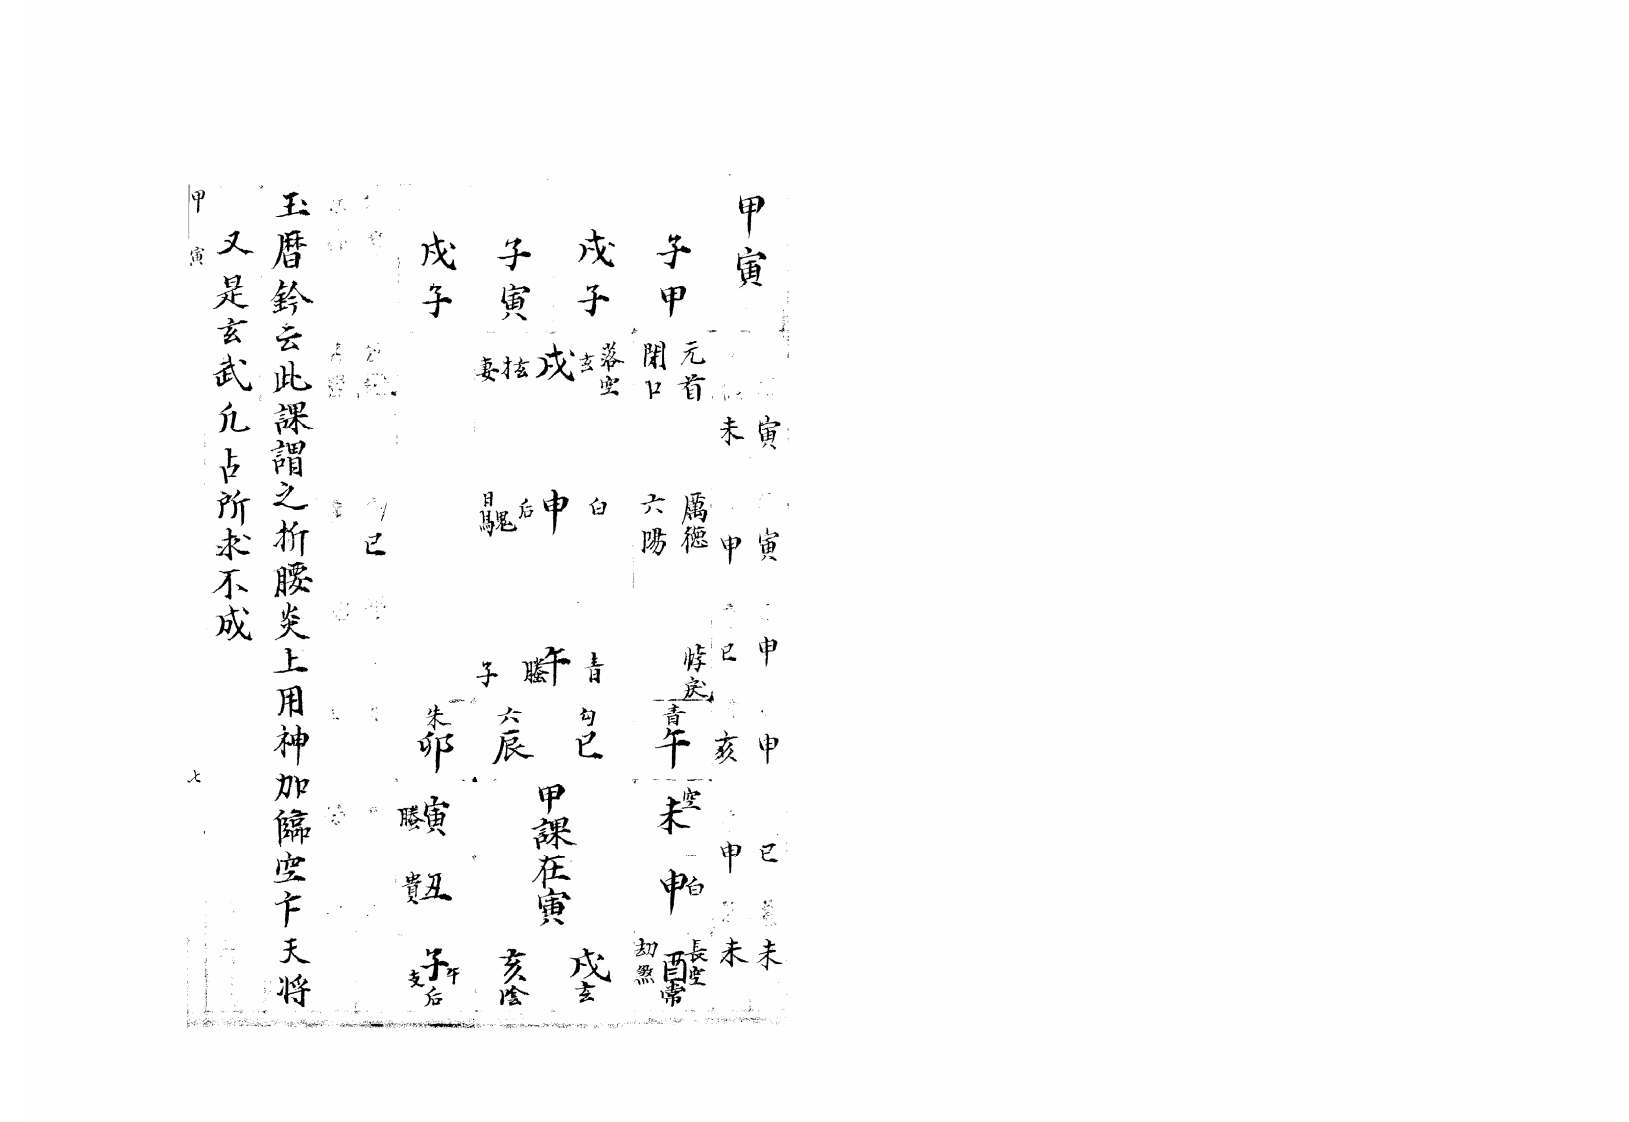 甲寅
寅 寅 申 申 巳 未
未 甲 巳 亥 申 未
子甲
戌子
子寅
戌子
元首 厲德 悖戾
閉口 六陽
落空 玄 戌 妻
白 申 后
青 午 螣 子
青午
勾巳
六辰
朱卯
空未
甲課在寅
寅螣
申白
丑貴
長空 酉常 劫煞
戌玄
亥陰
子后
巳
玉暦鈐云此課謂之折腰炎上用神加臨空亡天将
又是玄武凢占所求不成
甲寅 七